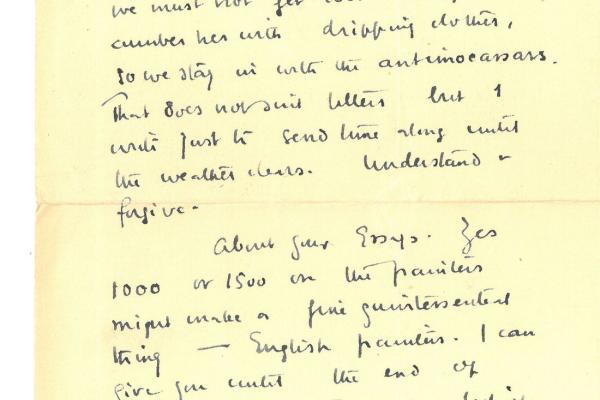 we must not get
cumber her with dripping clothes,
so we stay in with the antimacassars.
That does not suit letters but I
write just to send time along until
the weather clears. Understand &
forgive.
About your Essays. Yes
1000 or 1500 on the painters
might make a fine quintessential
thing — English painters. I can
give you until the end of